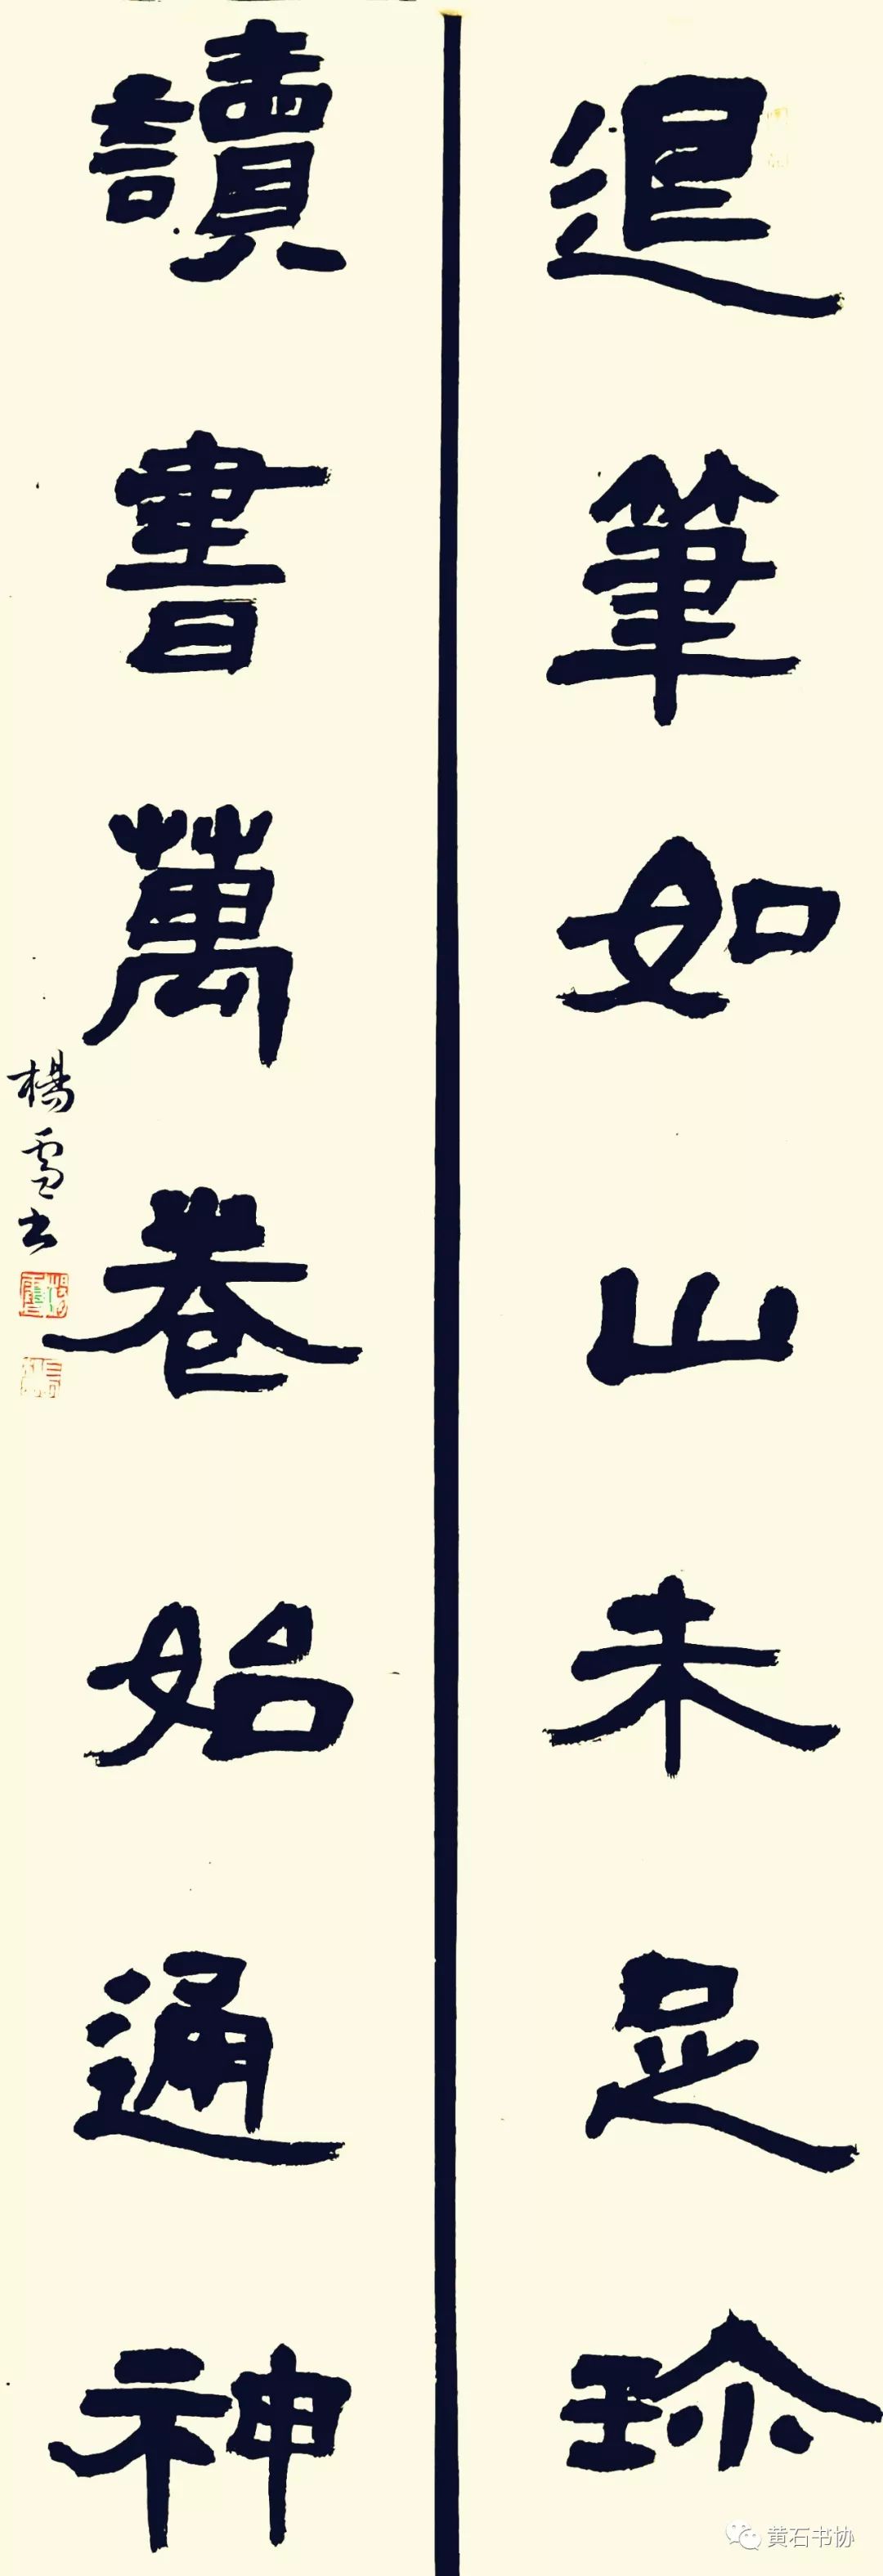 退筆如山未足珎
讀書萬卷始通神
楊雪书
黄石书协